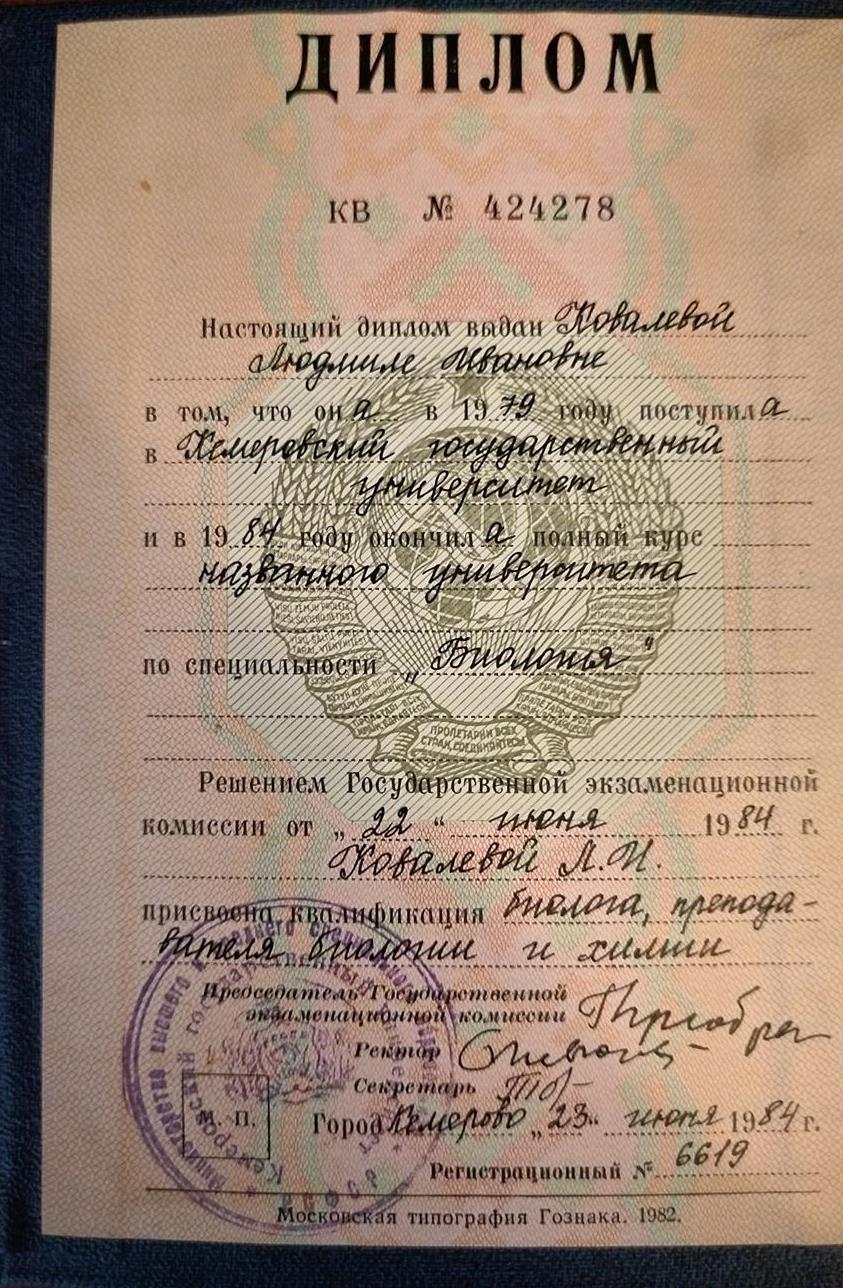 ДИПЛОМ
КВ № 424278
Настоящий диплом выдан Ковалевой
Людмиле Ивановне
в том, что она в 1979 году поступила
в Кемеровский государственный
университет
и в 1984 году окончила полный курс
названного университета
по специальности „Биология“
ПРОЛЕТАРИИ ВСЕХ
СТРАН, СОЕДИНЯЙТЕСЬ!
Решением Государственной экзаменационной
комиссии от „22“ июня 1984 г.
Ковалевой Л. И.
присвоена квалификация биолога, препода-
вателя биологии и химии
Председатель Государственной
экзаменационной комиссии
Ректор
Секретарь
М. П.
Город Кемерово „23“ июня 1984 г.
Регистрационный № 6619
Московская типография Гознака. 1982.